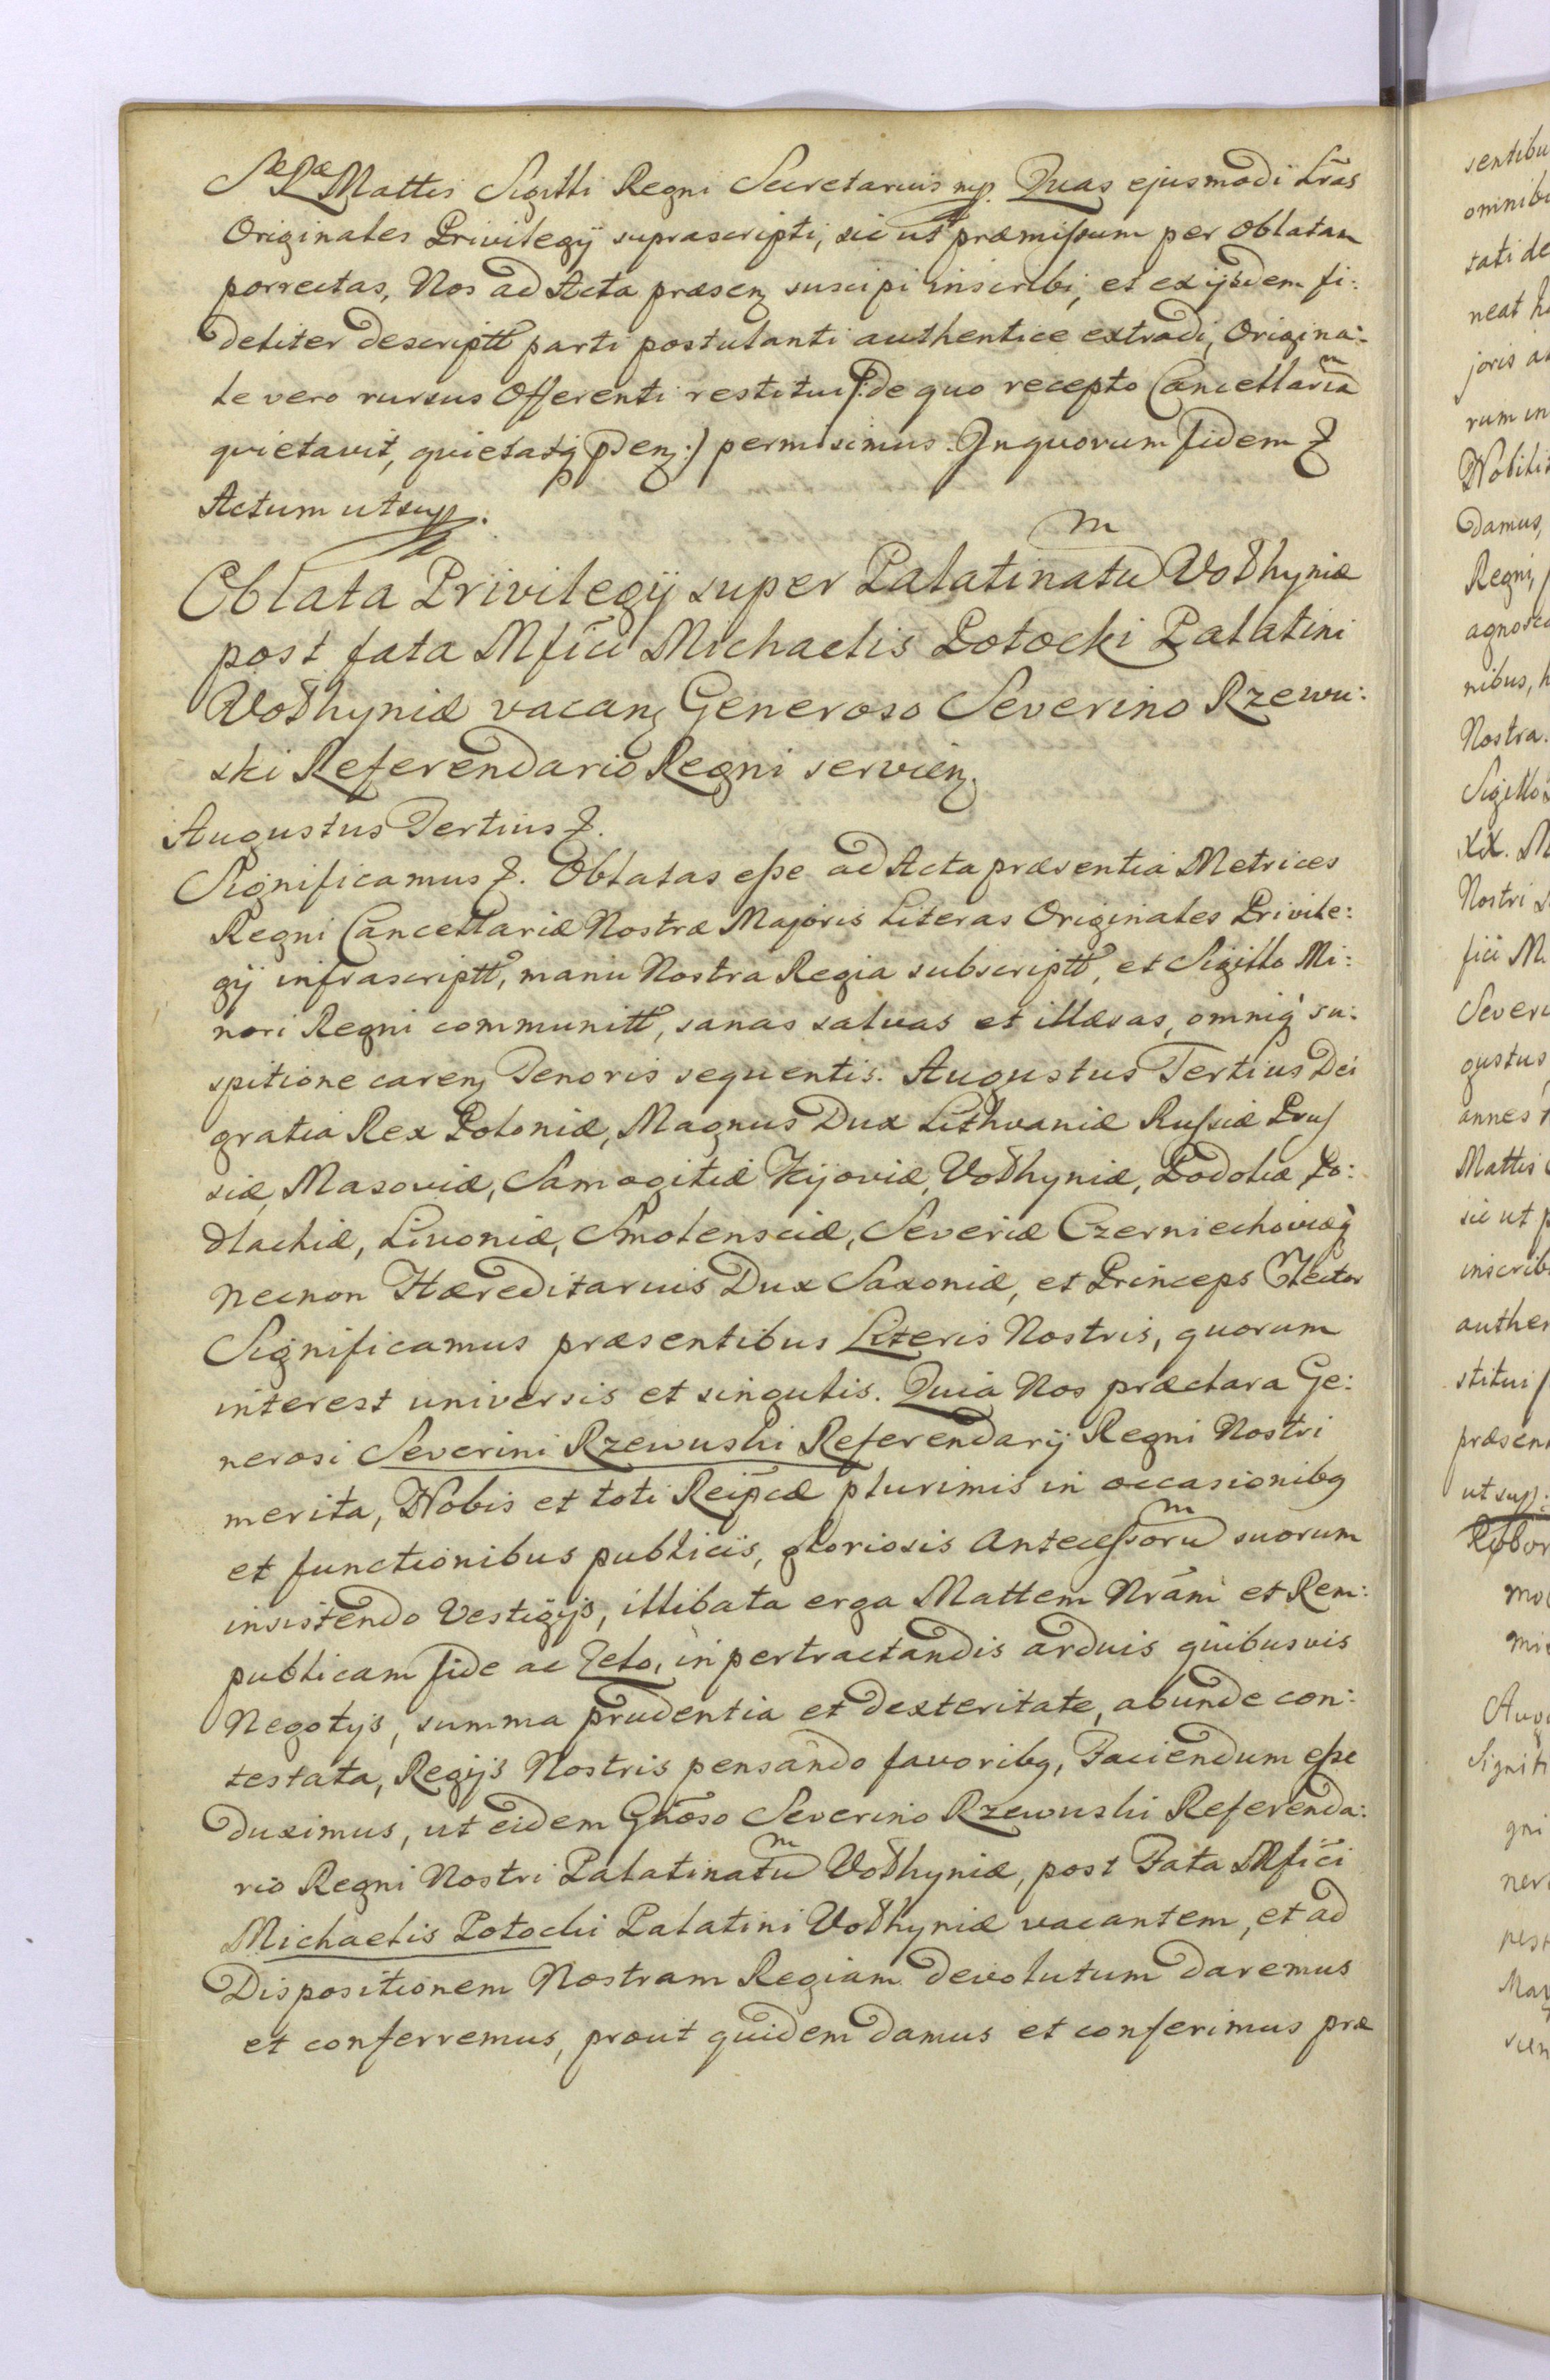 Sæ Ræ Mattis Sigilli Regni Secretarius mp. Quas ejusmodi Lrãs
Originales Privilegÿ suprascripti, sic ut præmissum per oblatam
porrectas, Nos ad Acta præsenʒ suscipi inscribi, et ex ijsdem fi:
deliter descriptt parti postulanti authentice extradi, Origina:
le vero rursus Offerenti restitui /:de quo recepto Cancellariam
quietavit, quietatq́ p̃senʒ:/ permisimus. In quorum fidem &
Actum ut sup.
Oblata Privilegÿ super Palatinatum Volhyniæ
post fata Mfici Michaelis Potocki Palatini
Volhyniæ vacanʒ Generoso Severino Rzewu:
ski Referendario Regni servienʒ.
Augustus Tertius &.
Significamus &. Oblatas esse ad Acta præsentia Metrices
Regni Cancellariæ Nostræ Majoris Literas Originales Privile:
gÿ infrascriptt, manu Nostra Regia subscriptt, et Sigillo Mi:
nori Regni communitt, sanas salvas et illæsas, omniq́ su:
spitione carenʒ Tenoris sequentis. Augustus Tertius Dei
gratia Rex Poloniæ, Magnus Dux Lithvaniæ Russiæ Prus
siæ, Masoviæ, Samogitiæ Kijoviæ, Volhyniæ, Podoliæ Po:
dlachiæ, Livoniæ, Smolensciæ, Severiæ Czerniechoviæq́
necnon Hæreditarius Dux Saxoniæ, et Princeps Elector
Significamus præsentibus Literis Nostris, quorum
interest universis et singulis. Quia Nos præclara Ge:
nerosi Severini Rzewuski Referendarÿ Regni Nostri
merita, Nobis et toti Reipcæ plurimis in occasionibq
et functionibus publicis, gloriosis Antecessorum suorum
insistendo Vestigÿs, illibata erga Mattem Nrãm et Rem:
publicam fide ac Zelo, in pertractandis arduis quibusvis
Negotÿs, summa prudentia et dexteritate, abunde con:
testata, Regÿs Nostris pensando favoribq, Faciendum esse
duximus, ut eidem Gnõso Severino Rzewuski Referenda:
rio Regni Nostri Palatinatum Volhyniæ, post Fata Mfici
Michaelis Potocki Palatini Volhyniæ vacantem, et ad
Dispositionem Nostram Regiam devolutum daremus
et conferremus, prout quidem damus et conferimus præ
sentibu
omnib
tati de
neat
joris a
rum in
Nobili
damus,
Regni,
agnosc
nibus, h
Nostra.
Sigillo
XIX. M
Nostri
fici M
Severi
gustus
annes
Mattis
sic ut p
inscrib
authen
stitui /
præsen
ut sup.
Robor
mo
mi
Augu
Signifi
gni
ner
pest
Maj
scen